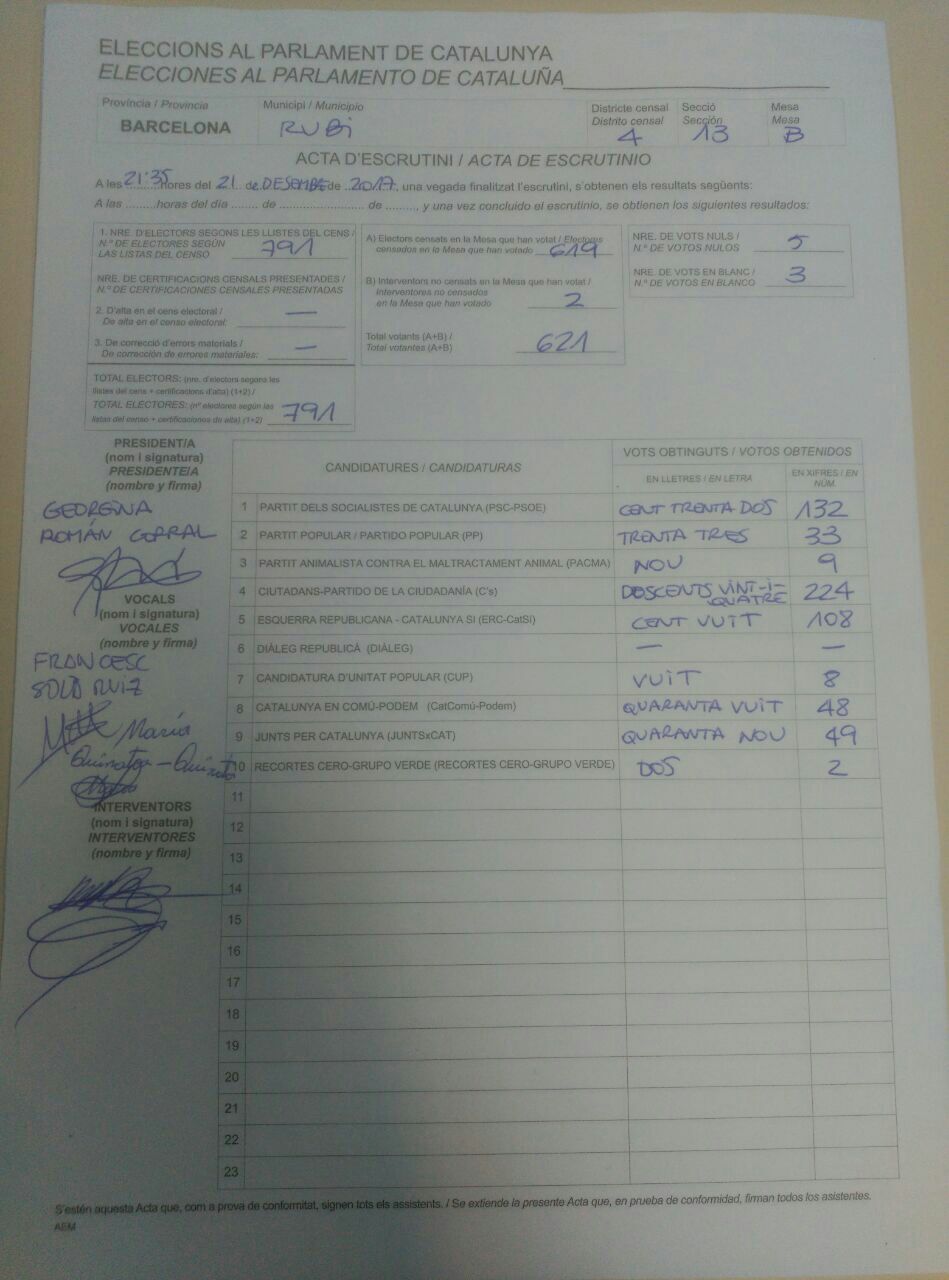 ELECCIONS AL PARLAMENT DE CATALUNYA
ELECCIONES AL PARLAMENTO DE CATALUÑA
Província / Provincia
BARCELONA
Municipi / Municipio
RUBI
Districte censal
Distrito censal
4
Secció
Sección
13
Mesa
Mesa
B
ACTA D'ESCRUTINI / ACTA DE ESCRUTINIO
A les 21:35 hores del 21 de DESEMBRE de 2017, una vegada finalitzat l'escrutini, s'obtenen els resultats següents:
A las ........horas del día ....... de ........................ de ........, y una vez concluido el escrutinio, se obtienen los siguientes resultados:
1. NRE. D'ELECTORS SEGONS LES LLISTES DEL CENS /
N.º DE ELECTORES SEGÚN
LAS LISTAS DEL CENSO 791
NRE. DE CERTIFICACIONS CENSALS PRESENTADES /
N.º DE CERTIFICACIONES CENSALES PRESENTADAS
2. D'alta en el cens electoral /
De alta en el censo electoral: —
3. De correcció d'errors materials /
De corrección de errores materiales: —
TOTAL ELECTORS: (nre. d'electors segons les
llistes del cens + certificacions d'alta) (1+2) /
TOTAL ELECTORES: (nº electores según las
listas del censo + certificaciones de alta) (1+2) 791
A) Electors censats en la Mesa que han votat / Electores
censados en la Mesa que han votado 619
B) Interventors no censats en la Mesa que han votat /
Interventores no censados
en la Mesa que han votado 2
Total votants (A+B) /
Total votantes (A+B) 621
NRE. DE VOTS NULS /
N.º DE VOTOS NULOS 5
NRE. DE VOTS EN BLANC /
N.º DE VOTOS EN BLANCO 3
PRESIDENT/A
(nom i signatura)
PRESIDENTE/A
(nombre y firma)
GEORGINA
ROMÁN CORRAL
VOCALS
(nom i signatura)
VOCALES
(nombre y firma)
FRANCESC
SOLA RUIZ
María
INTERVENTORS
(nom i signatura)
INTERVENTORES
(nombre y firma)
CANDIDATURES / CANDIDATURAS
VOTS OBTINGUTS / VOTOS OBTENIDOS
EN LLETRES / EN LETRA
EN XIFRES / EN NÚM.
1 PARTIT DELS SOCIALISTES DE CATALUNYA (PSC-PSOE) CENT TRENTA DOS 132
2 PARTIT POPULAR / PARTIDO POPULAR (PP) TRENTA TRES 33
3 PARTIT ANIMALISTA CONTRA EL MALTRACTAMENT ANIMAL (PACMA) NOU 9
4 CIUTADANS-PARTIDO DE LA CIUDADANÍA (C's) DOSCENTS VINT-I-QUATRE 224
5 ESQUERRA REPUBLICANA - CATALUNYA SI (ERC-CatSí) CENT VUIT 108
6 DIÀLEG REPUBLICÀ (DIÀLEG) — —
7 CANDIDATURA D'UNITAT POPULAR (CUP) VUIT 8
8 CATALUNYA EN COMÚ-PODEM (CatComú-Podem) QUARANTA VUIT 48
9 JUNTS PER CATALUNYA (JUNTSxCAT) QUARANTA NOU 49
10 RECORTES CERO-GRUPO VERDE (RECORTES CERO-GRUPO VERDE) DOS 2
11
12
13
14
15
16
17
18
19
20
21
22
23
S'estén aquesta Acta que, com a prova de conformitat, signen tots els assistents. / Se extiende la presente Acta que, en prueba de conformidad, firman todos los asistentes.
AEM